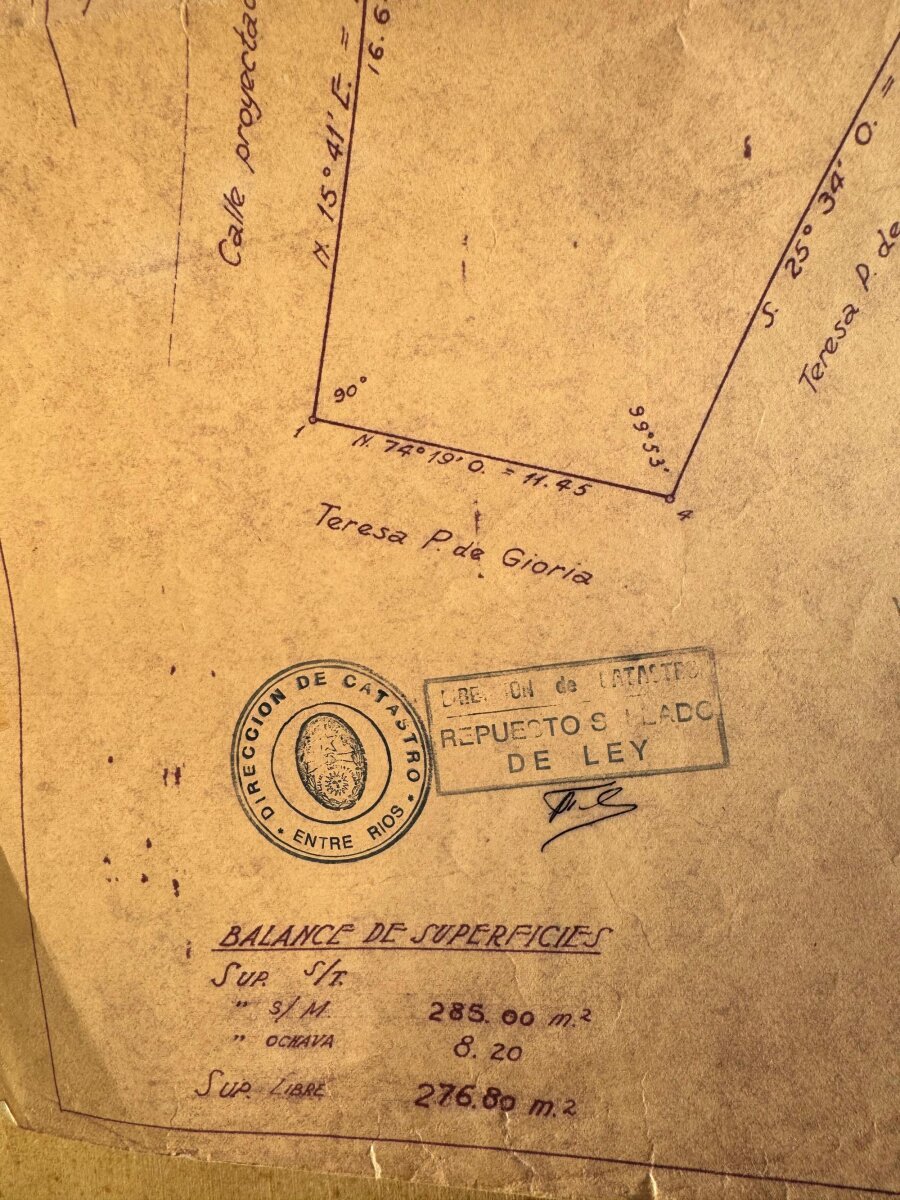 Calle proyectad
N. 15° 41' E. =
16.6
S. 25° 34' O. =
Teresa P. de
90°
99°53'
1
N. 74° 19' O. = 11.45
4
Teresa P. de Gioria
DIRECCION DE CATASTRO
• ENTRE RIOS •
DIRECCION de CATASTRO
REPUESTO SELLADO
DE LEY
BALANCE DE SUPERFICIES
SUP. S/T.
" S/M. 285.00 m.2
" OCHAVA 8.20
SUP. LIBRE 276.80 m.2